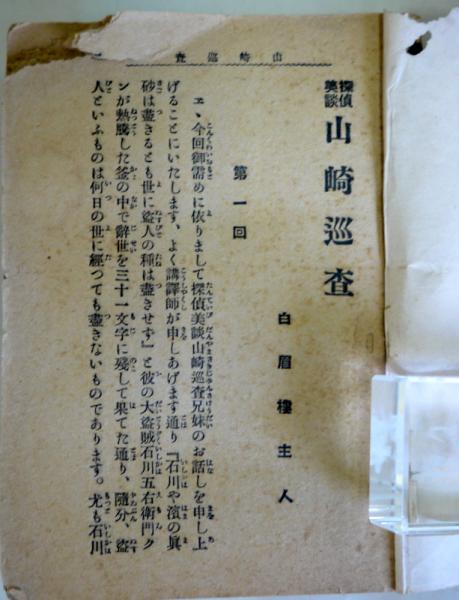 山崎巡査
探偵美談 山崎巡査
白眉樓主人
第一回
ヱ、今回御需めに依りまして探偵美談山崎巡査兄妹のお話しを申し上
げることにいたします、よく講釋師が申しあげます通り『石川や濱の眞
砂は盡きるとも世に盗人の種は盡きせず』と彼の大盗賊石川五右衛門ク
ンが熱騰した釜の中で辭世を三十一文字に殘して果てた通り、隨分、盗
人といふものは何日の世に經つても盡きないものであります。尤も石川